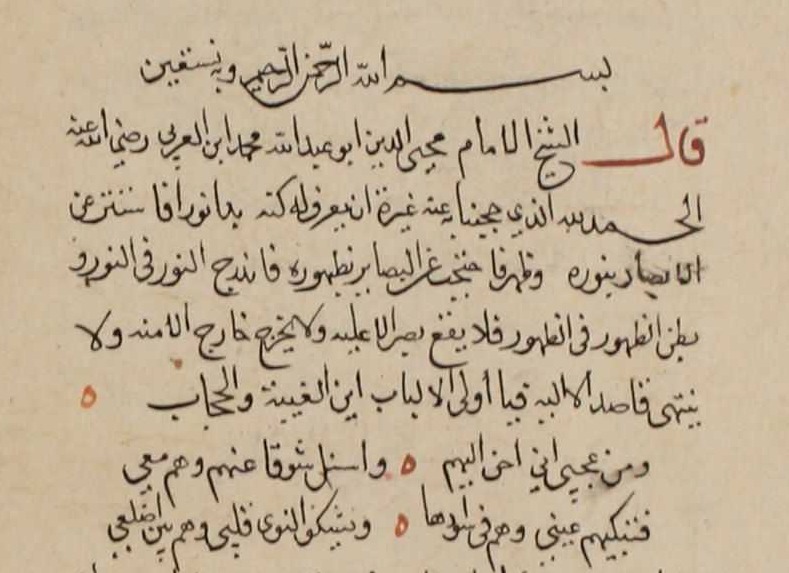 بسم الله الرحمن الرحيم وبه نستعين
قال الشيخ الامام محيي الدين ابو عبد الله محمد ابن العربي رضي الله عنه
الحمد لله الذي حجبنا به عنه غيرة ان يعرف له كنه بدا نورا فاستتر عن
الابصار بنوره وظهر فاحتجب عن البصاير بظهوره فاندرج النور في النور و
بطن الظهور في الظهور فلا يقع بصر الا عليه ولا يخرج خارج الا منه ولا
ينتهي قاصد الا اليه فيا أولى الالباب اين الغيبة والحجاب ه
ومن عجبي اني احن اليهم ه واسئل شوقا عنهم وهم معي
فتبكيهم عيني وهم في سوادها ه وتشكو النوى قلبي وهم بين اضلعي